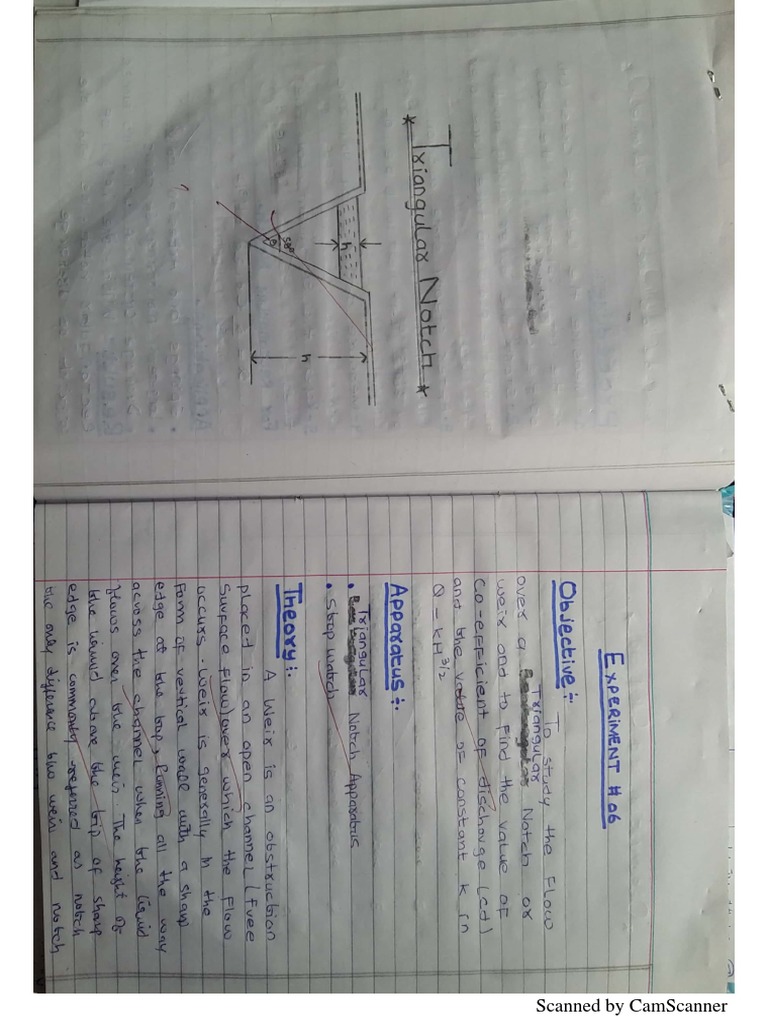 * Triangular Notch *
h
θ
h
EXPERIMENT # 06
Objective:-
To study the flow
over a Triangular Notch or
weir and to find the value of
Co-efficient of discharge (cd)
and the value of constant k in
Q = KH^3/2
Apparatus:-
• Triangular Notch Apparatus
• Stop watch
Theory:-
A Weir is an obstruction
placed in an open channel (free
Surface flow) over which the flow
occurs. Weir is generally in the
Form of vertical wall with a sharp
edge at the top, running all the way
across the channel when the liquid
flows over the weir. The height of
the liquid above the tip of sharp
edge is commonly referred as notch
the only difference b/w weir and notch
Scanned by CamScanner